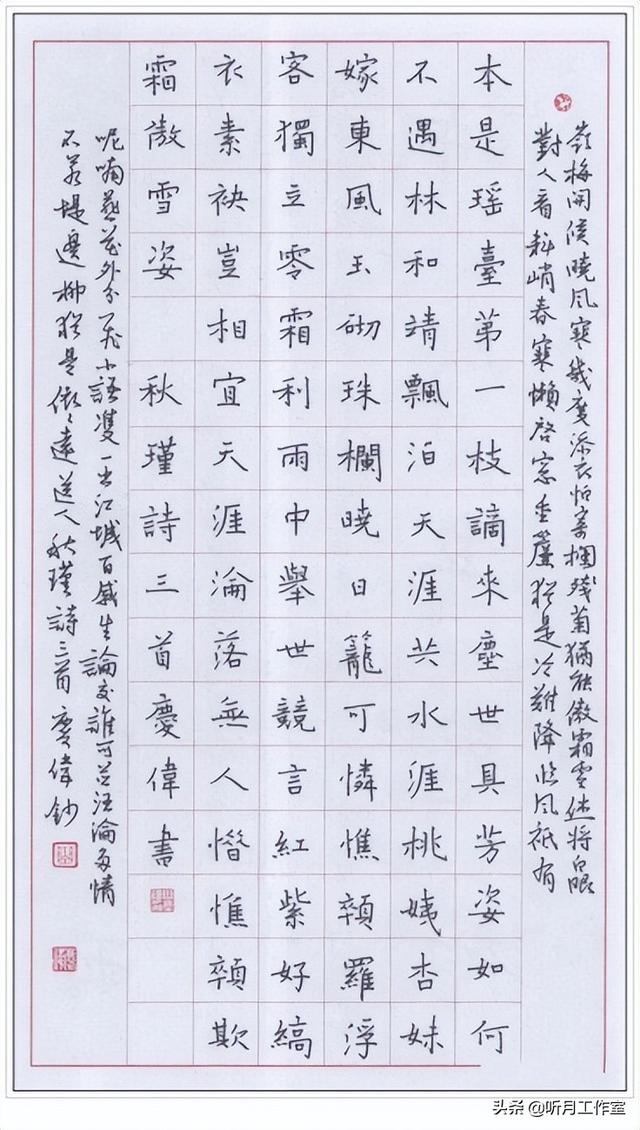 嶺梅開候曉風寒幾度添衣怕寄欄殘菊猶能傲霜雪休將白眼
對人看料峭春寒懶啓窓重簾猶是冷難降臨風祇有
本是瑶臺苐一枝謫來塵世具芳姿如何
不遇林和靖飄泊天涯共水涯桃姨杏妹
嫁東風玉砌珠欄曉日籠可憐憔顇羅浮
客獨立零霜利雨中舉世競言紅紫好縞
衣素袂豈相宜天涯淪落無人惜憔顇欺
霜傲雪姿 秋瑾詩三首慶偉書
呢喃燕花外分飛小語雙一出江城百感生論交誰可並汪淪多情
不若堤邊柳猶是依々遠送人秋瑾詩三首慶偉鈔
头条 @听月工作室